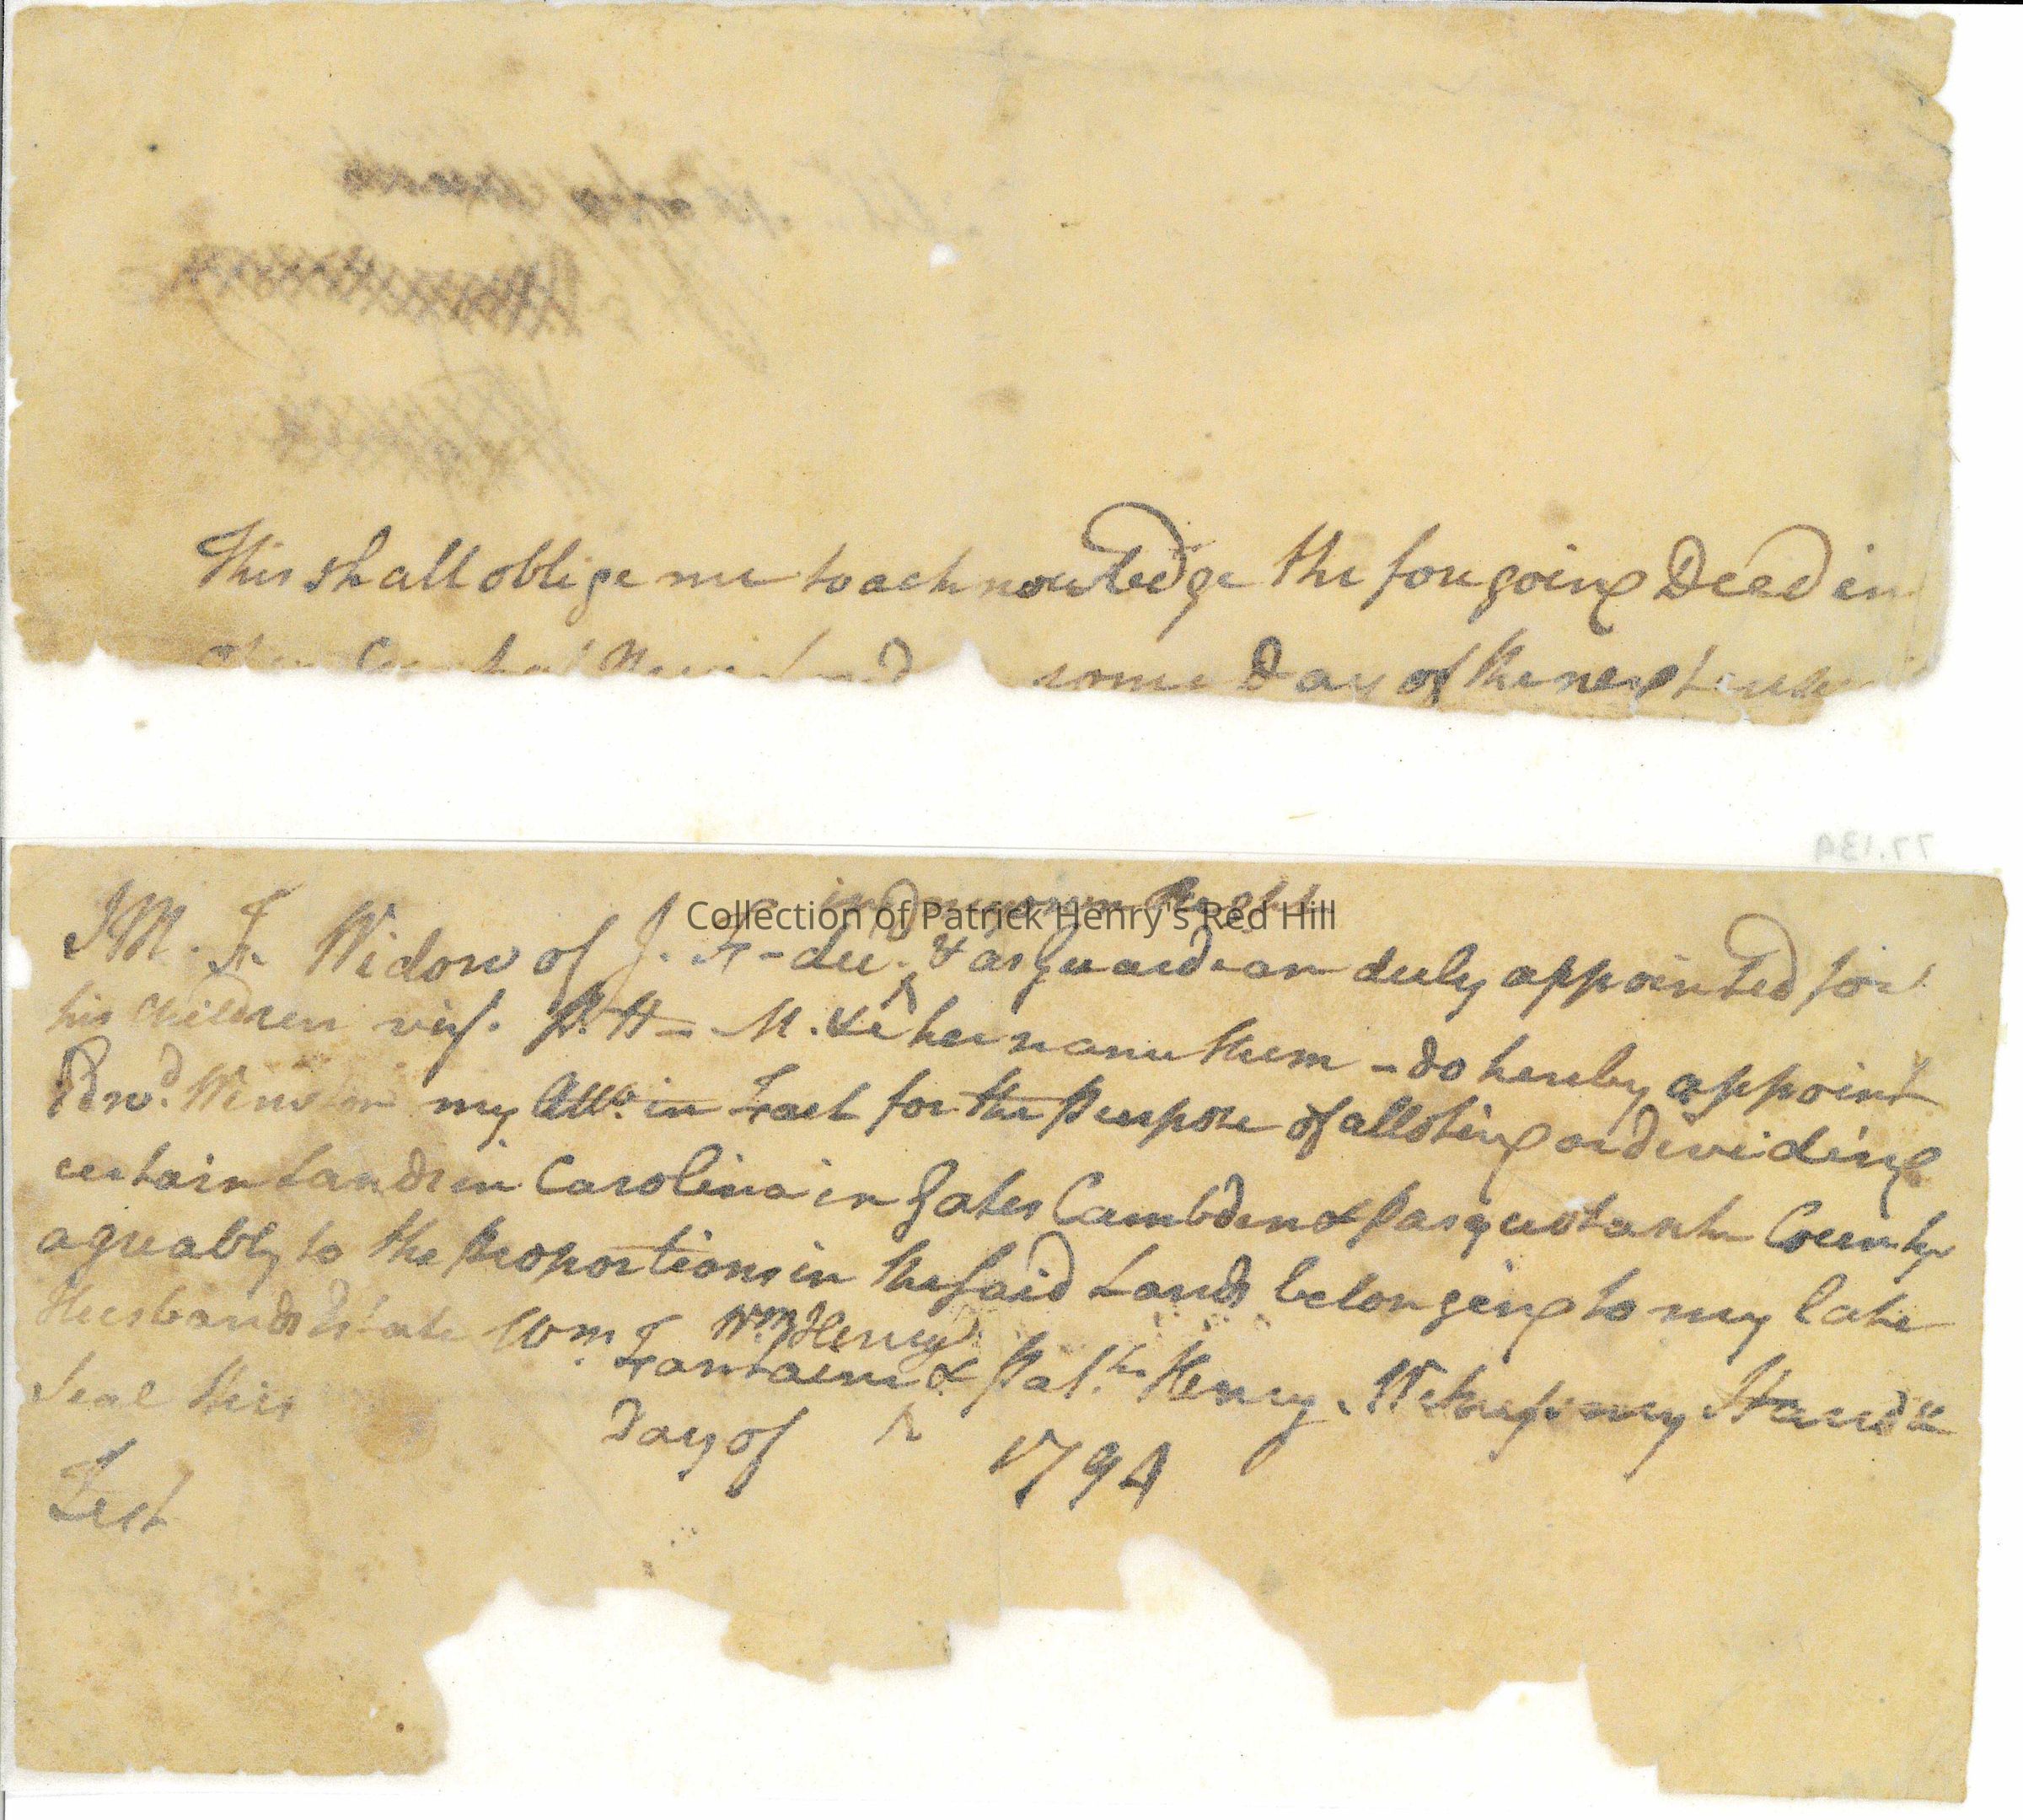 This shall oblige me to acknowledge the foregoing Deed in
some Day of the next
77.139
in my own Right
Collection of Patrick Henry's Red Hill
I M. F. Widow of J. F - dec.d & as Guardian duly appointed for
his Children viz. P. H - M. &c here name them - do hereby appoint
Edw.d Winston my Atto. in Fact for the Purpose of alloting or dividing
certain Lands in Carolina in Gates Cambden & Pasquotank County
agreably to the Proportions in the said Lands belonging to my late
Husbands Estate Wm. Henry
Wm. F Fontaine & Pat. Henry. Witness my Hand &
Seal this Day of 1794
Test